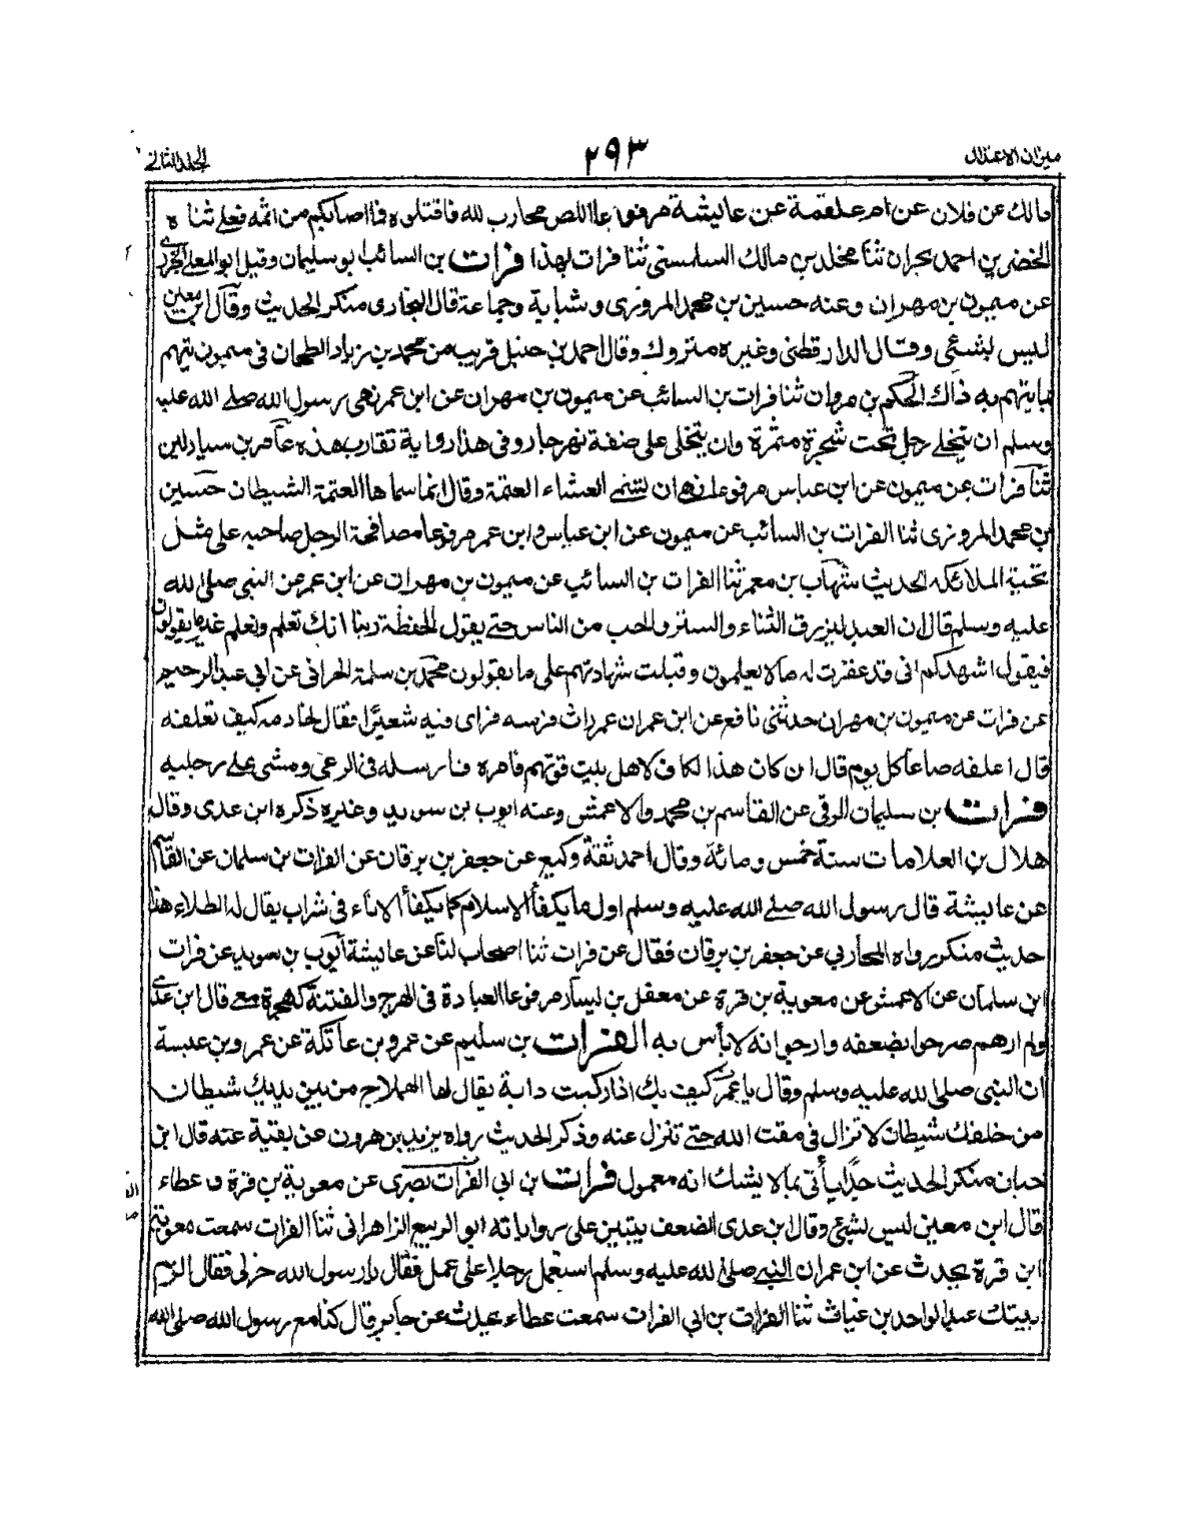 ميزان الاعتدال ٢٩٣ الجلد الثاني
مالك عن فلان عن ام علقمة عن عايشة مرفوعا اللص محارب لله فاقتلوه فما اصابكم من اثمه فعلي ثناه
الخضر بن احمد بحران ثنا مخلد بن مالك السلمسني ثنا فرات بهذا فرات بن السائب ابو سليمان وقيل ابو المعلى الجزري
عن ميمون بن مهران وعنه حسين بن محمد المروزى وشبابة وجماعة قال البخارى منكر الحديث وقال ابن معين
ليس بشئ وقال الدارقطنى وغيره متروك وقال احمد بن حنبل قريب من محمد بن زياد الطحان فى ميمون يتهم
بما يتهم به ذاك الحكم بن مروان ثنا فرات بن السائب عن ميمون بن مهران عن ابن عمر نهى رسول الله صلى الله عليه
وسلم ان يتخلى رجل تحت شجرة مثمرة وان يتخلى على ضفة نهر جار وفى هذا رواية تقارب هذه عامر بن سيار
ثنا فرات عن ميمون عن ابن عباس مرفوعا ان تسمى العشاء العتمة وقال انما سماها العتمة الشيطان حسين
بن محمد المروزى ثنا الفرات بن السائب عن ميمون عن ابن عباس وابن عمر مرفوعا مصافحة الرجل صاحبه على مثل
تحية الملائكة الحديث شهاب بن معمر ثنا الفرات بن السائب عن ميمون بن مهران عن ابن عمر عن النبى صلى الله
عليه وسلم قال ان العبد ليرزق الثناء والستر والحب من الناس حتى يقول الحفظة ربنا انك تعلم ونعلم غير ما يقولون
فيقول اشهدكم انى قد غفرت له مالا يعلمون وقبلت شهادتهم على ما يقولون محمد بن سلمة الحرانى عن ابى عبد الرحيم
عن فرات عن ميمون بن مهران حدثنى نافع عن ابن عمر ان عمر اتى فرسه فراى فيه شعيرا فقال لخادمه كيف تعلفه
قال اعلفه صاعا كل يوم قال ان كان هذا لكاف لاهل بيت قوتهم فامره فارسله فى الرعى ومشى على رجليه
فرات بن سليمان الرقى عن القاسم بن محمد والاعمش وعنه ايوب بن سويد وغيره ذكره ابن عدى وقال
هلال بن العلا مات سنة خمس ومائة وقال احمد ثقة وكيع عن جعفر بن برقان عن الفرات بن سلمان عن القاسم
عن عايشة قال رسول الله صلى الله عليه وسلم اول ما يكفأ الاسلام كما يكفأ الاناء فى شراب يقال له الطلاء هذا
حديث منكر رواه المحاربي عن جعفر بن برقان فقال عن فرات ثنا اصحاب لنا عن عايشة أيوب بن سويد عن فرات
ابن سلمان عن الاعمش عن معوية بن قرة عن معقل بن يسار مرفوعا العبادة فى الهرج والفتنة كهجرة معي قال ابن عدي
ولم ارهم صرحوا بضعفه وارجو انه لا بأس به الفرات بن سليم عن عمرو بن عاتكة عن عمرو بن عبسة
ان النبى صلى الله عليه وسلم وقال يا عمر كيف بك اذا ركبت دابة يقال لها الهملاج من بين يديك شيطان
من خلفك شيطان لا تزال فى مقت الله حتى تنزل عنه وذكر الحديث رواه يزيد بن هرون عن بقية عنه قال ابن
حبان منكر الحديث جدا يأتى بما لا يشك انه معمول فرات بن ابى الفرات بصرى عن معوية بن قرة و عطاء
قال ابن معين ليس بشئ وقال ابن عدى الضعف يتبين على رواياته ابو الربيع الزاهرانى ثنا الفرات سمعت معوية
ابن قرة يحدث عن ابن عمر ان النبي صلى الله عليه وسلم استعمل رجلا على عمل فقال يا رسول الله خر لى فقال الزم
بيتك عبد الواحد بن غياث ثنا الفرات بن ابى الفرات سمعت عطاء يحدث عن جابر قال كنا مع رسول الله صلى الله